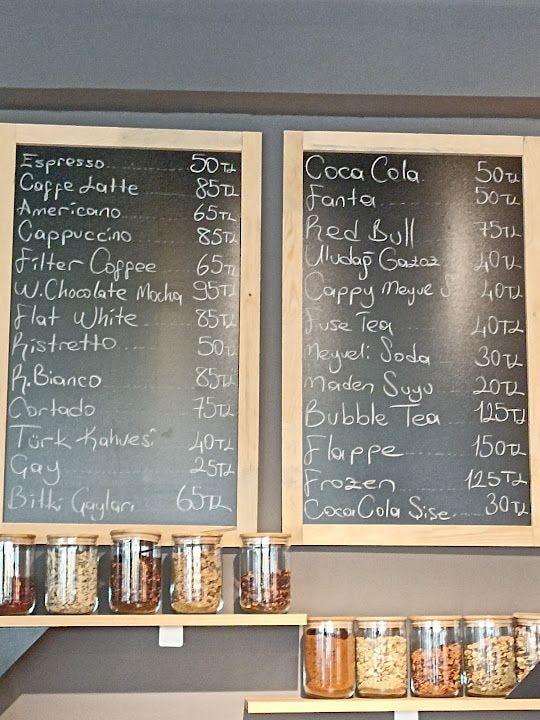 Espresso 50TL
Caffe Latte 85TL
Americano 65TL
Cappuccino 85TL
Filter Coffee 65TL
W.Chocolate Mocha 95TL
Flat White 85TL
Ristretto 50TL
R.Bianco 85TL
Cortado 75TL
Türk Kahvesi 40TL
Çay 25TL
Bitki Çayları 65TL
Coca Cola 50TL
Fanta 50TL
Red Bull 75TL
Uludağ Gazoz 40TL
Cappy Meyve S 40TL
Fuse Tea 40TL
Meyveli Soda 30TL
Maden Suyu 20TL
Bubble Tea 125TL
Flappe 150TL
Frozen 125TL
Coca Cola Şişe 30TL